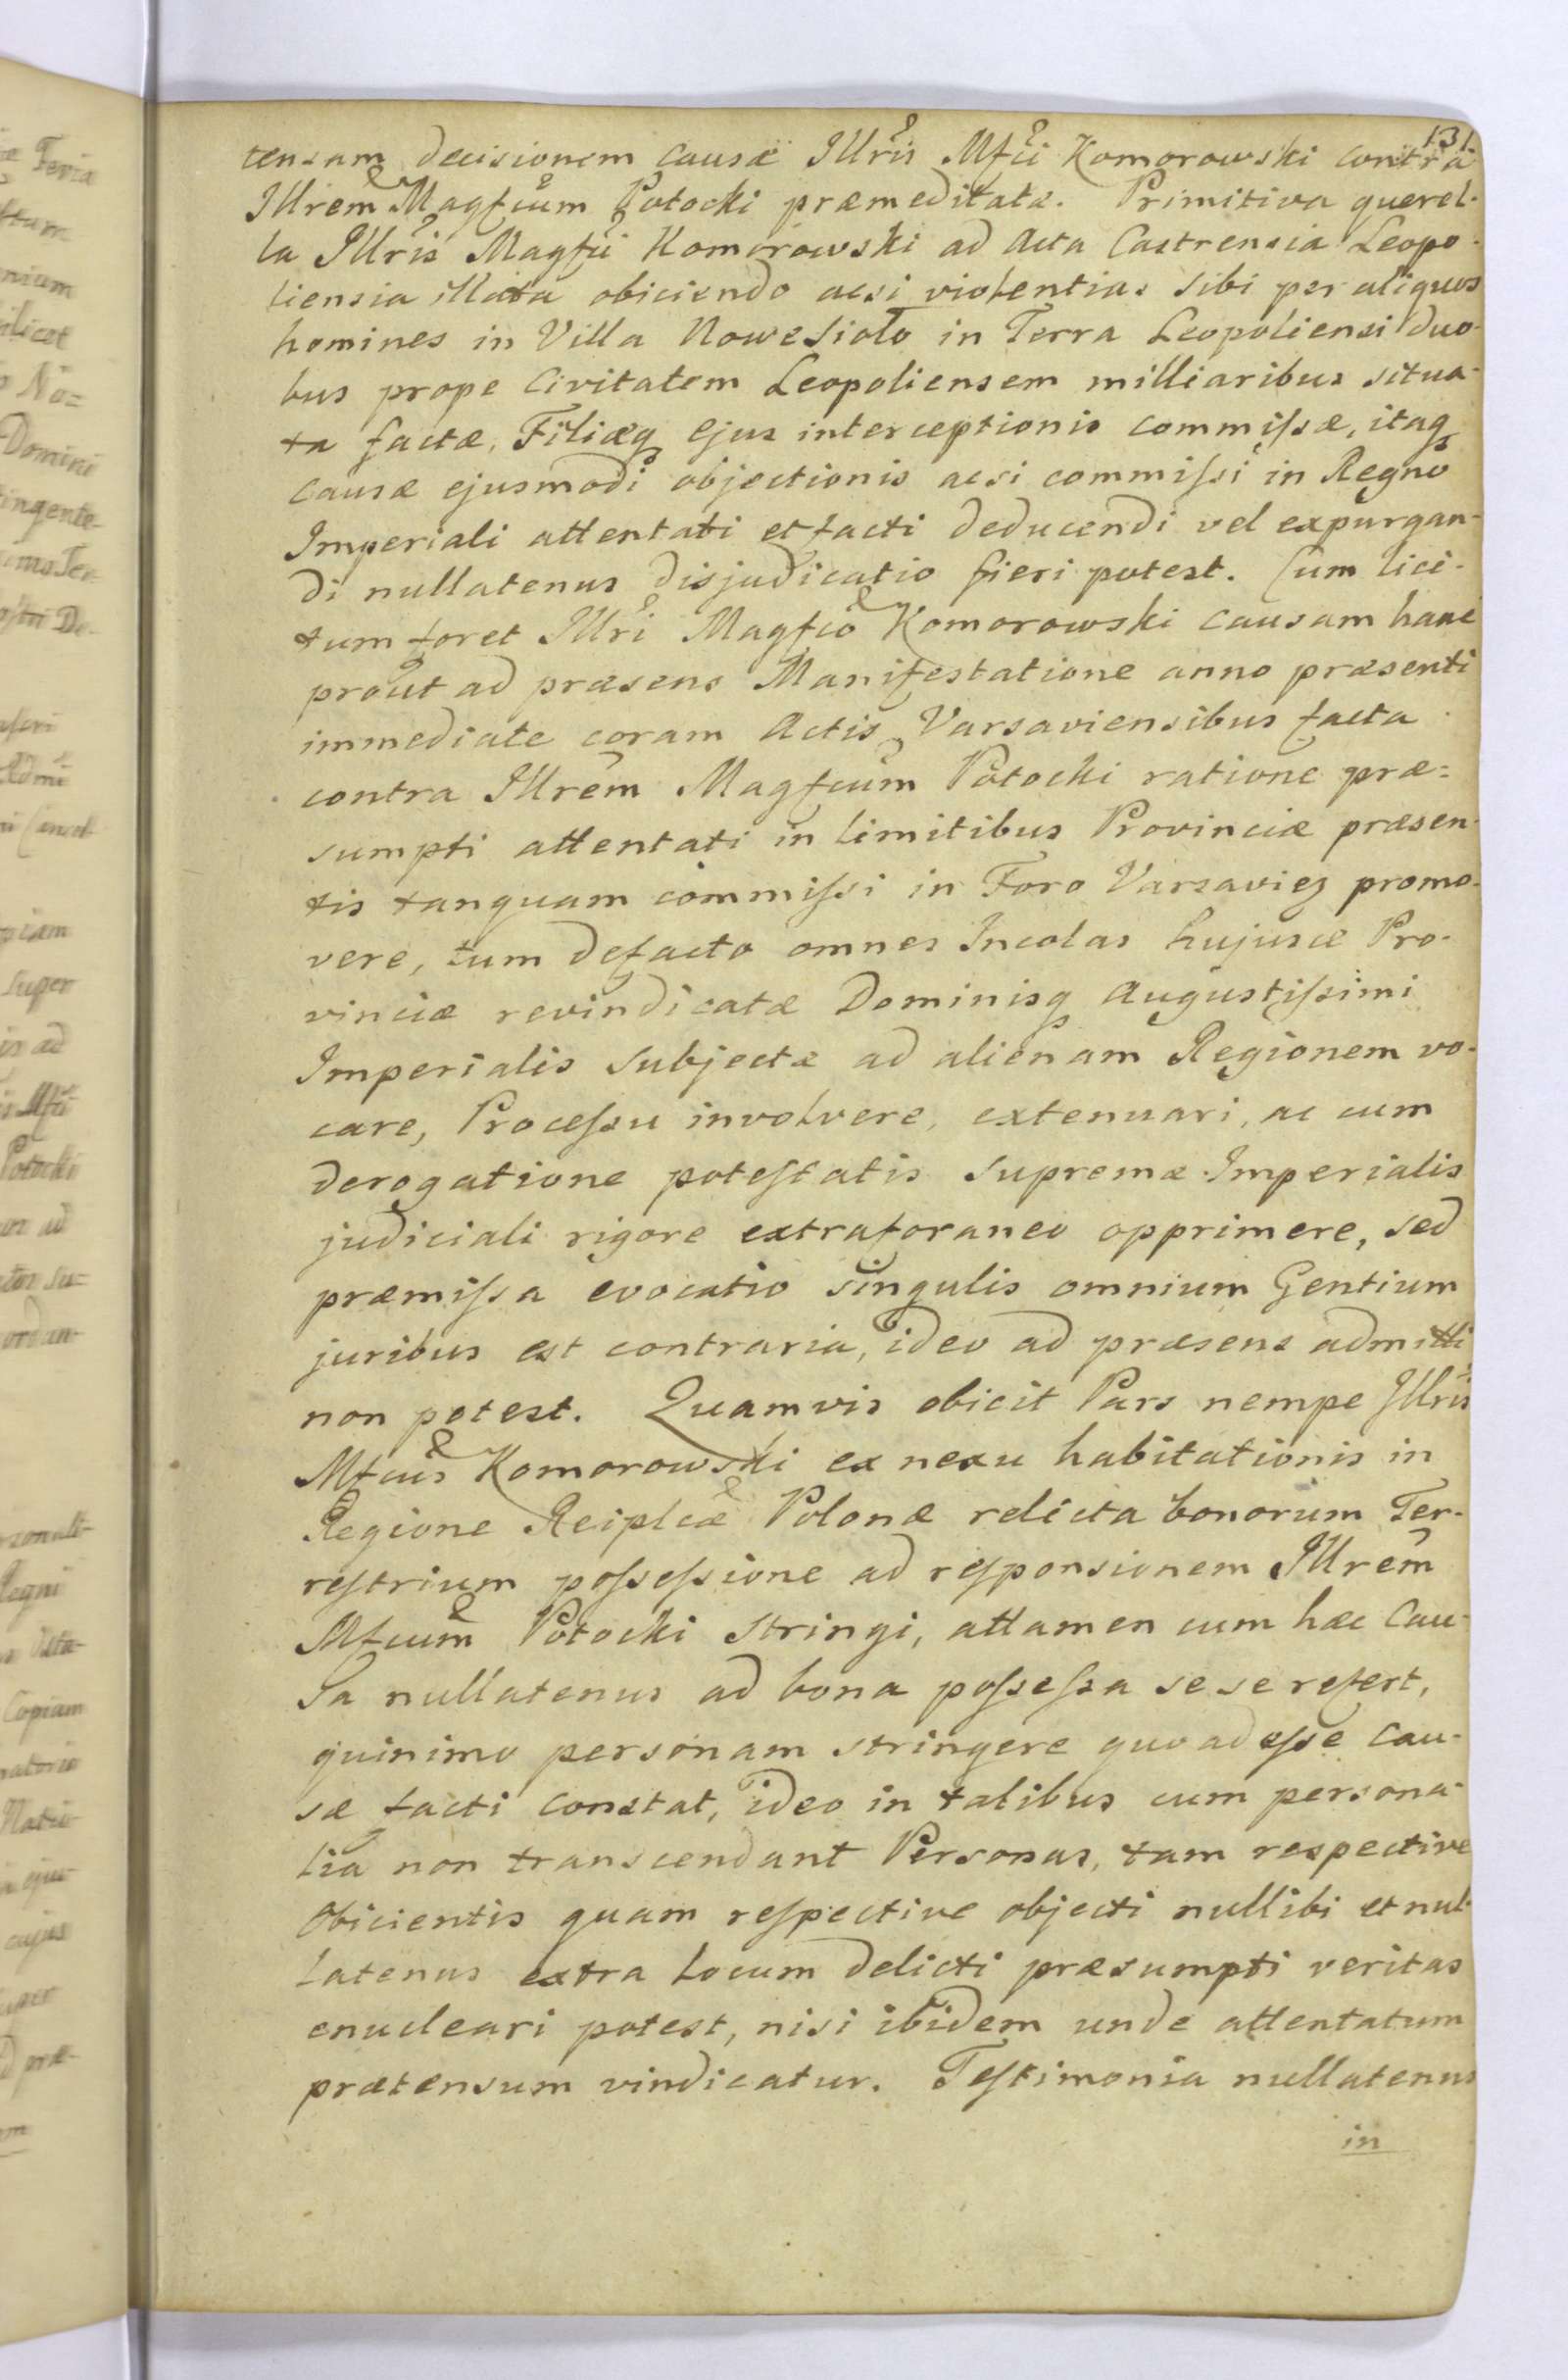 131
tensam decisionem causæ Illris Mfci Komorowski contra
Illrem Magfcum Potocki præmeditatæ. Primitiva querel-
la Illris Magfci Komorowski ad Acta Castrensia Leopo-
liensia illata obiciendo acsi violentias sibi per aliquos
homines in Villa Nowesioło in Terra Leopoliensi duo-
bus prope Civitatem Leopoliensem milliaribus situa-
ta factæ, Filiæq ejus interceptionis commissæ, itaq
causæ ejusmodi objectionis acsi commissi in Regno
Imperiali attentati et facti deducendi vel expurgan-
di nullatenus disjudicatio fieri potest. Cum lici-
tum foret Illri Magfco Komorowski causam hanc
prout ad præsens Manifestatione anno præsenti
immediate coram Actis Varsaviensibus facta
contra Illrem Magfcum Potocki ratione præ=
sumpti attentati in limitibus Provinciæ præsen-
tis tanquam commissi in Foro Varsavien promo-
vere, tum defacto omnes Incolas hujusce Pro-
vinciæ revindicatæ Dominisq Augustissimi
Imperialis subjectæ ad alienam Regionem vo-
care, Processu involvere, extenuari, ac cum
derogatione potestatis supremæ Imperialis
judiciali rigore extraforaneo opprimere, sed
præmissa evocatio singulis omnium Gentium
juribus est contraria, ideo ad præsens admitti
non potest. Quamvis obicit Pars nempe Illris
Mfcus Komorowski ex nexu habitationis in
Regione Reiplcæ Polonæ relicta bonorum Ter-
restrium possessione ad responsionem Illrem
Mfcum Potocki stringi, attamen cum hæc Cau-
sa nullatenus ad bona possessa sese refert,
quinimo personam stringere quoad esse cau-
sæ facti constat, ideo in talibus cum persona-
lia non transcendant Personas, tam respective
Obicientis quam respective objecti nullibi et nul-
latenus extra locum delicti præsumpti veritas
enucleari potest, nisi ibidem unde attentatum
prætensum vindicatur. Testimonia nullatenus
in